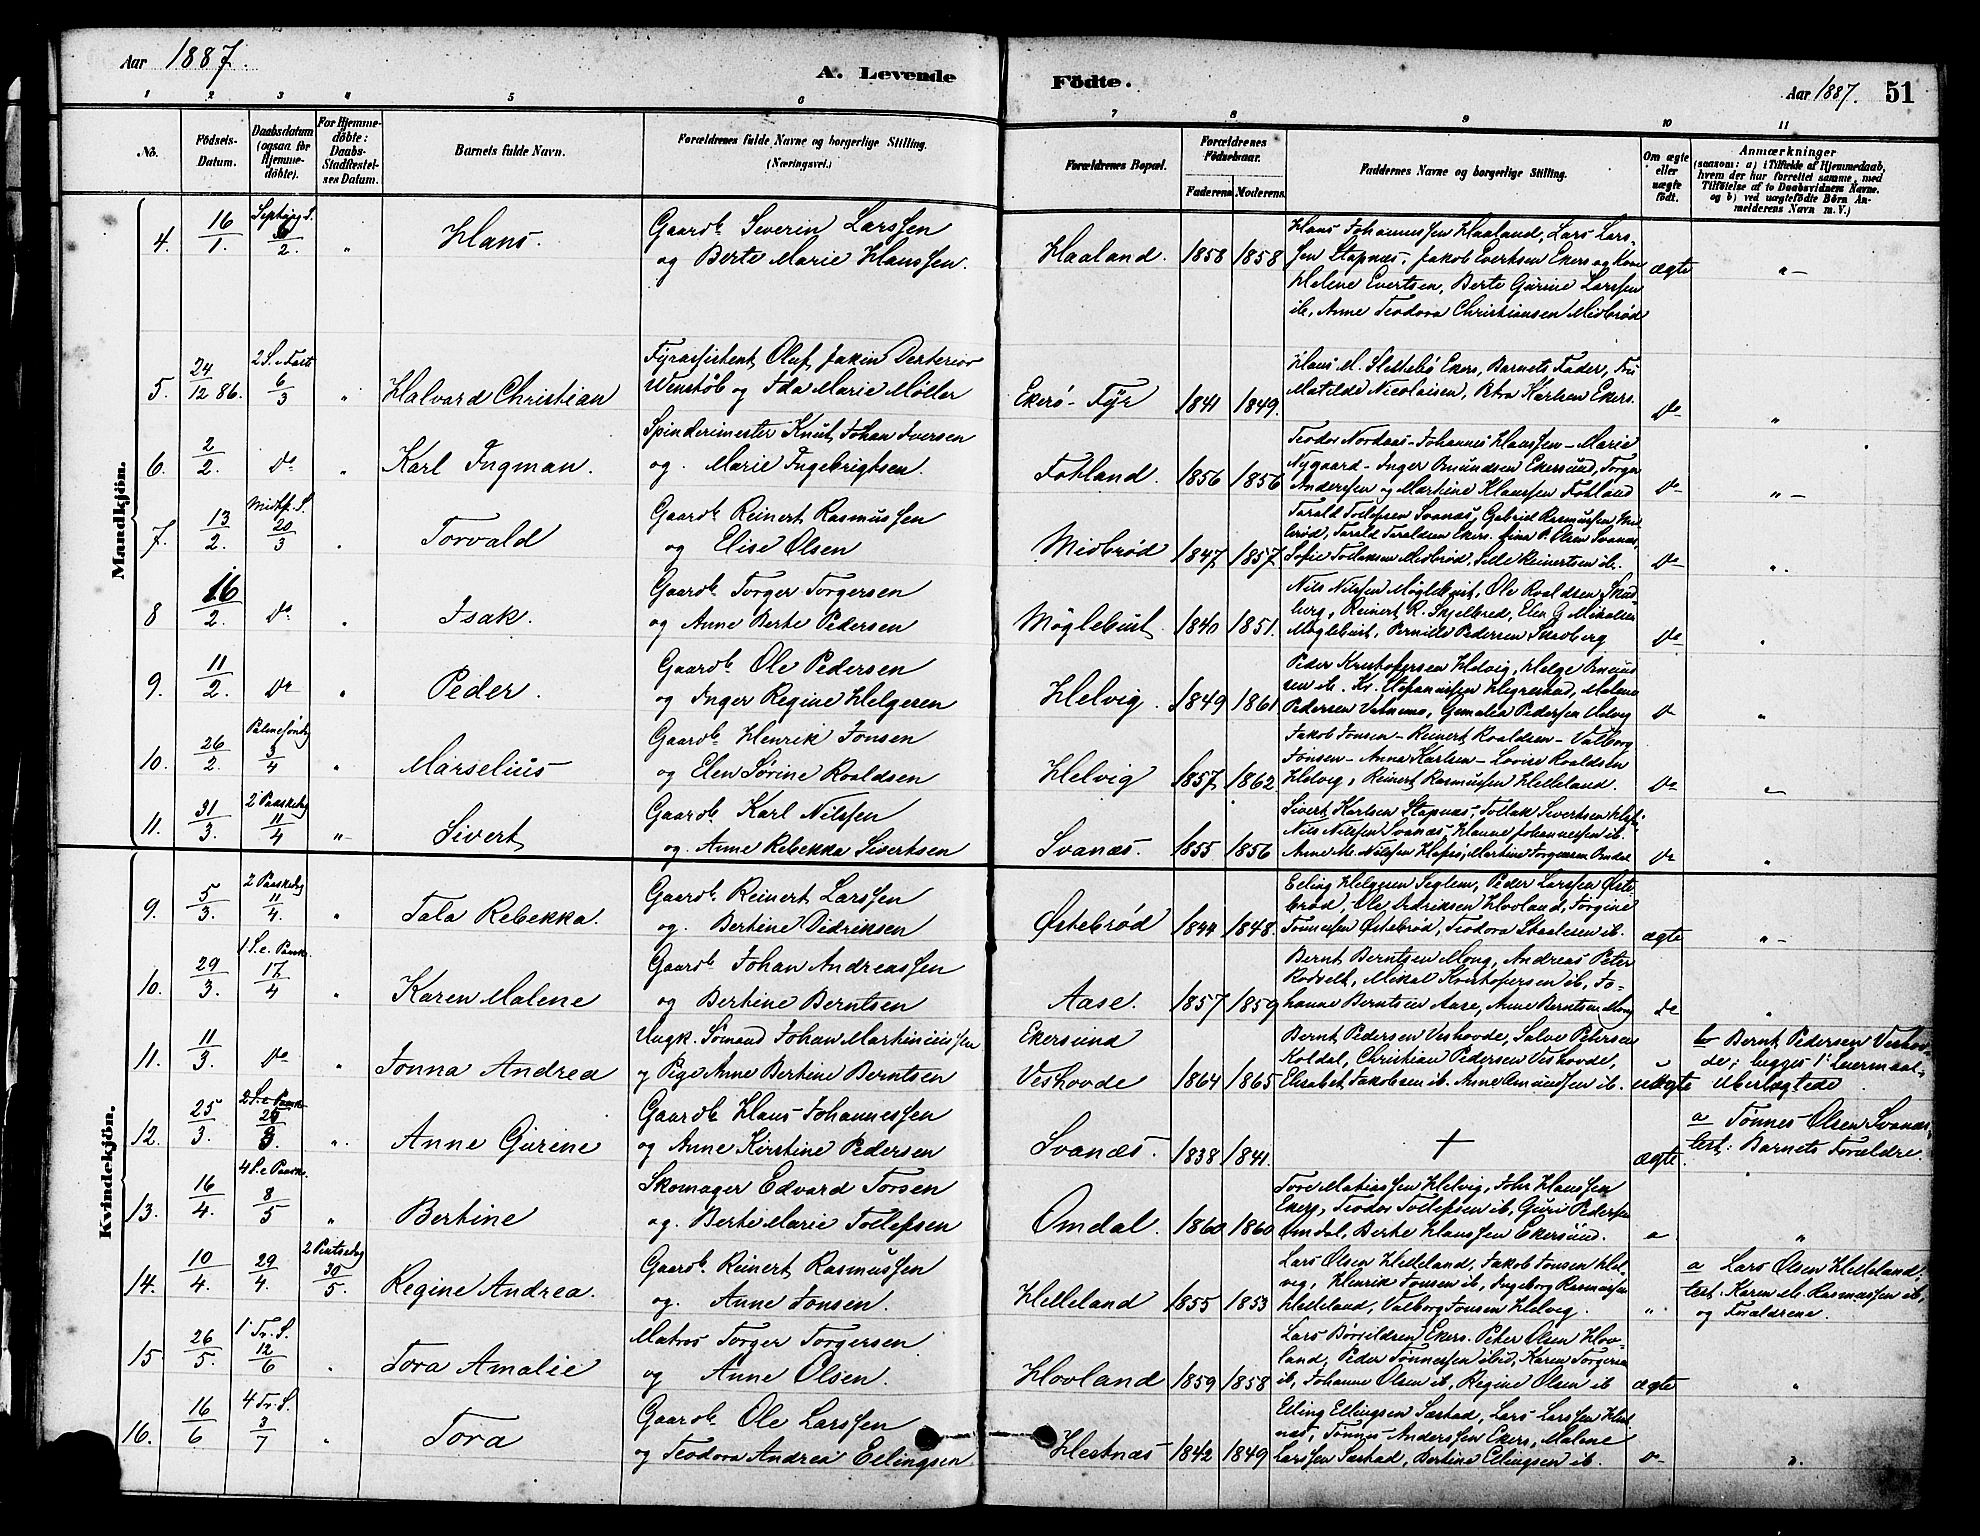 Aar 1887.
A. Levende
Födte.
Aar 1887. 51
1 2 3 4 5 6 7 8 9 10 11
No.
Födsels-Datum.
Daabsdatum (ogsaa for Hjemme-döbte).
For Hjemme-döbte: Daabs-Stadfæstel-ses Datum.
Barnets fulde Navn.
Forældrenes fulde Navne og borgerlige Stilling.
(Næringsvei.)
Forældrenes Bopæl.
Forældrenes Födselsaar.
Faderens. Moderens.
Faddernes Navne og borgerlige Stilling.
Om ægte eller uægte födt.
Anmærkninger
(saasom: a) i Tilfælde af Hjemmedaab, hvem der har forrettet samme, med Tilföielse af to Daabsvidners Navne. og b) ved uægtefödte Börn An-melderens Navn m. V.)
Mandkjön.
4. 16/1. /2. " Hans. Gaardb Severin Larssen
og Berte Marie Hanssen. Haaland. 1858 1858
Hans Johannessen Haaland, Lars Lars-
sen Stapnæs, Jakob Evertsen Ekers og Kone
Helene Evertsen, Berte Gurine Larssen
ib, Anne Teodora Christiansen Midbrød
ægte "-
5. 24/12 86. 2 S. i Faste 6/3 " Halvard Christian Fyrassistent Oluf Jakin
Wenskøb og Ida Marie Møller Ekerø-Fyr 1841 1849.
Hans M. Slettebö Ekers, Barnets Fader, Fru
Matilde Nicolaisen, Petra Karlsen Ekers.
Do "
6. 2/2. Do " Karl Ingman. Spinderimester Knut Johan Iversen
og. Marie Ingebrigtsen. Fotland. 1856 1856
Teodor Nordaas- Johannes Hanssen- Marie
Nygaard- Inger Omundsen Ekersund, Torger
Anderssen og Martine Hanssen Fotland
Do "-
7. 13/2. Midtf. S. 20/3 " Torvald Gaardb Reinert Rasmussen
og Elise Olsen Midbrød 1847 1857
Tarald Tollefsen Svanæs, Gabriel Rasmussen Mid-
brød, Tarald Taraldsen Ekers. Olsen Svanæs,
Sofie Tollaksen Midbrød, Reinertsen ib.
Do "
8 16/2. Do " Isak. Gaardb Torger Torgersen
og Anne Berte Pedersen Møglebust. 1840 1851.
Nils Nilssen Møglebust, Ole Roaldsen Skad-
berg, Reinert R. Skjelbred, Elen G Mikalsen
Møglebust, Pernille Pedersen Skadberg
Do "
9. 11/2. Do " Peder. Gaardb Ole Pedersen
og Inger Regine Helgesen Helvig. 1849 1861
Peder Kristofersen Helvig, Helge
sen ib. Kr. Stefanussen Hegrestad, Malene
Pedersen Vatnemo, Pedersen Helvig
Do "
10. 26/2. Palmesöndg 3/4 " Marselius Gaardb Henrik Jonsen
og Elen Sørine Roaldsen Helvig 1857 1862
Jakob Jonsen- Reinert Roaldsen- Valborg
Jonsen- Anne Karlsen- Lovise Roaldsen
Helvig, Reinert Rasmussen Helleland.
Do "
11. 31/3. 2 Paaskedg 11/4 "- Sivert Gaardb. Karl Nilssen
og. Anne Rebekka Sivertsen Svanæs. 1855 1856
Sivert Karlsen Stapnæs, Tollak Sivertsen
Nils Nilssen Svanæs, Hanne Johannessen ib.
Anne M. Nilssen Martine Torgersen Omdal
Do "
Kvindekjön.
9. 5/3. 2 Paaskedg 11/4. " Tala Rebekka. Gaardb Reinert Larssen
og. Bertine Didriksen Østebrød 1844 1848.
Elling Helgesen Seglem, Peder Larssen Øste-
brød, Ole Didriksen Hovland, Torgine
Tønnessen Østebrød, Teodora Skaalesen ib.
ægte "-
10. 29/3. 1 S. e. Paaske. 17/4 " Karen Malene Gaardb Johan Andreassen
og Bertine Berntsen Aase. 1857 1859
Bernt Berntsen Mong, Andreas Peter
Rodvelt, Mikal Kristofersen ib, Jo-
hanne Berntsen Aase, Anne Berntsen Mong
Do "
11. 11/3. Do " Jonna Andrea Ungk. Sömand Johan Martiniussen
og Pige Anne Bertine Berntsen Ekersund
Veshovde 1864 1865
Bernt Pedersen Veshovde, Salve Petersen
Koldal, Christian Pedersen Veshovde,
Elisabet Jakobsen ib. Anne Amundssen ib.
uægte b Bernt Pedersen Vesho-
de; begges 1' Leiermaal.
12. 25/3. 2 S. e Paaske " Anne Gurine Gaardb Hans Johannessen
og Anne Kirstine Pedersen Svanæs. 1838 1841.
+
ægte. a Tönnes Olsen Svanæs,
test: Barnets Forældre.
13. 16/4. 4 S. e Paaske. 8/5 " Bertine Skomager Edvard Torsen
og. Berte Marie Tollefsen Omdal. 1860 1860
Tore Matiassen Helvig, Hanssen
Ekers, Teodor Tollefsen ib, Guri Pedersen
Omdal, Berte Hanssen Ekersund.
" "
14. 10/4. 29/4. 2 Pintsedg 30/5. Regine Andrea. Gaardb. Reinert Rasmussen
og. Anne Jonsen. Helleland 1855 1853
Lars Olsen Helleland, Jakob Jonsen Hel-
vig, Henrik Jonsen ib, Ingeborg Rasmussen
Helleland, Valborg Jonsen Helvig.
" a Lars Olsen Helleland.
test. Karen M. Rasmussen ib,
og Forældrene.
15. 26/5. 1 Tr. S. 12/6 " Tora Amalie Matros Torger Torgersen
og Anne Olsen. Hovland 1859 1858
Lars Ekers. Peter Olsen Hov-
land, Peder Tønnessen ibid, Karen Torgersen
ib, Johanne Olsen ib, Regine Olsen ib
ægte "
16. 16/6 4 Tr. S. 3/7 " Tora Gaardb Ole Larssen
og Teodora Andrea Ellingsen Hestnæs 1842 1849
Elling Ellingsen Sæstad, Lars Larssen Hest-
næs, Tønnes Anderssen Ekers, Malene
Larssen Sæstad, Bertine Ellingsen ib.
Do "